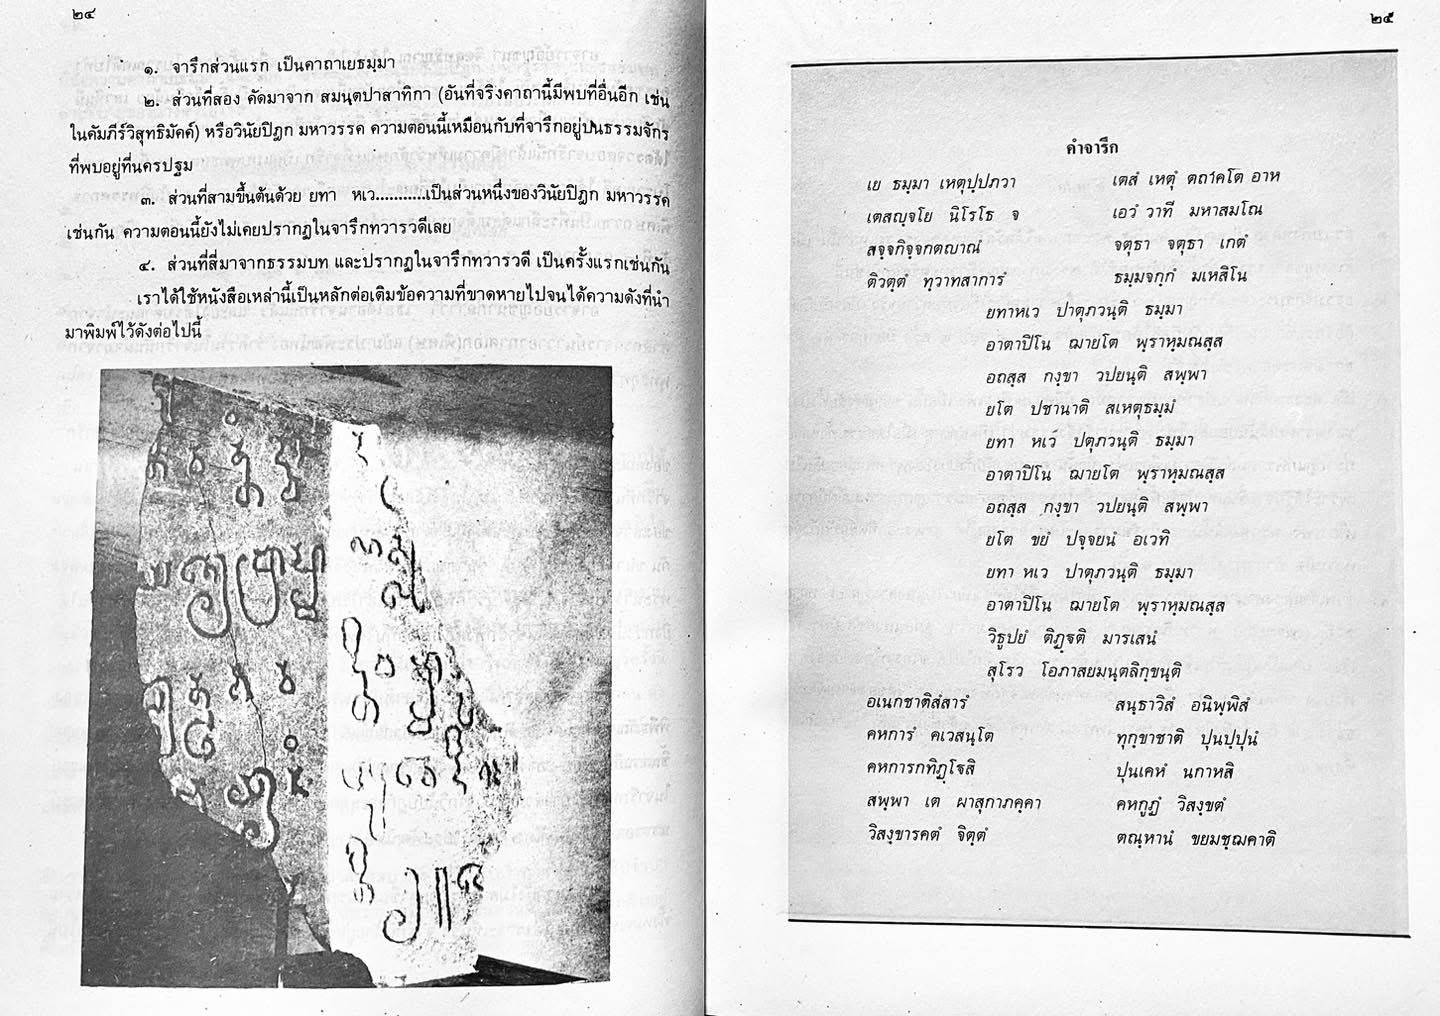 ๒๔
๑. จารึกส่วนแรก เป็นคาถาเยธมฺมา
๒. ส่วนที่สอง คัดมาจาก สมนฺตปาสาทิกา (อันที่จริงคาถานี้มีพบที่อื่นอีก เช่น
ในคัมภีร์วิสุทธิมัคค์) หรือวินัยปิฎก มหาวรรค ความตอนนี้เหมือนกับที่จารึกอยู่บนธรรมจักร
ที่พบอยู่ที่นครปฐม
๓. ส่วนที่สามขึ้นต้นด้วย ยทา หเว...........เป็นส่วนหนึ่งของวินัยปิฎก มหาวรรค
เช่นกัน ความตอนนี้ยังไม่เคยปรากฏในจารึกทวารวดีเลย
๔. ส่วนที่สี่มาจากธรรมบท และปรากฏในจารึกทวารวดี เป็นครั้งแรกเช่นกัน
เราได้ใช้หนังสือเหล่านี้เป็นหลักต่อเติมข้อความที่ขาดหายไปจนได้ความดังที่นำ
มาพิมพ์ไว้ดังต่อไปนี้
๒๕
คำจารึก
เย ธมฺมา เหตุปฺปภวา เตสํ เหตุํ ตถาคโต อาห
เตสญฺจโย นิโรโธ จ เอวํ วาที มหาสมโณ
สจฺจกิจฺจกตญาณํ จตุธา จตุธา เกตํ
ติวตฺตํ ทฺวาทสาการํ ธมฺมจกฺกํ มเหสิโน
ยทาหเว ปาตุภวนฺติ ธมฺมา
อาตาปิโน ฌายโต พฺราหฺมณสฺส
อถสฺส กงฺขา วปยนฺติ สพฺพา
ยโต ปชานาติ สเหตุธมฺมํ
ยทา หเว ปตุภวนฺติ ธมฺมา
อาตาปิโน ฌายโต พฺราหฺมณสฺส
อถสฺส กงฺขา วปยนฺติ สพฺพา
ยโต ขยํ ปจฺจยนํ อเวทิ
ยทา หเว ปาตุภวนฺติ ธมฺมา
อาตาปิโน ฌายโต พฺราหฺมณสฺส
วิธูปยํ ติฏฺฐติ มารเสนํ
สุโรว โอภาสยมนฺตลิกฺขนฺติ
อเนกชาติสํสารํ สนฺธาวิสํ อนิพฺพิสํ
คหการํ คเวสนฺโต ทุกฺขาชาติ ปุนปฺปุนํ
คหการกทิฏฺโฐสิ ปุนเคหํ นกาหสิ
สพฺพา เต ผาสุกาภคฺคา คหกูฏํ วิสงฺขตํ
วิสงฺขารคตํ จิตฺตํ ตณฺหานํ ขยมชฺฌคาติ